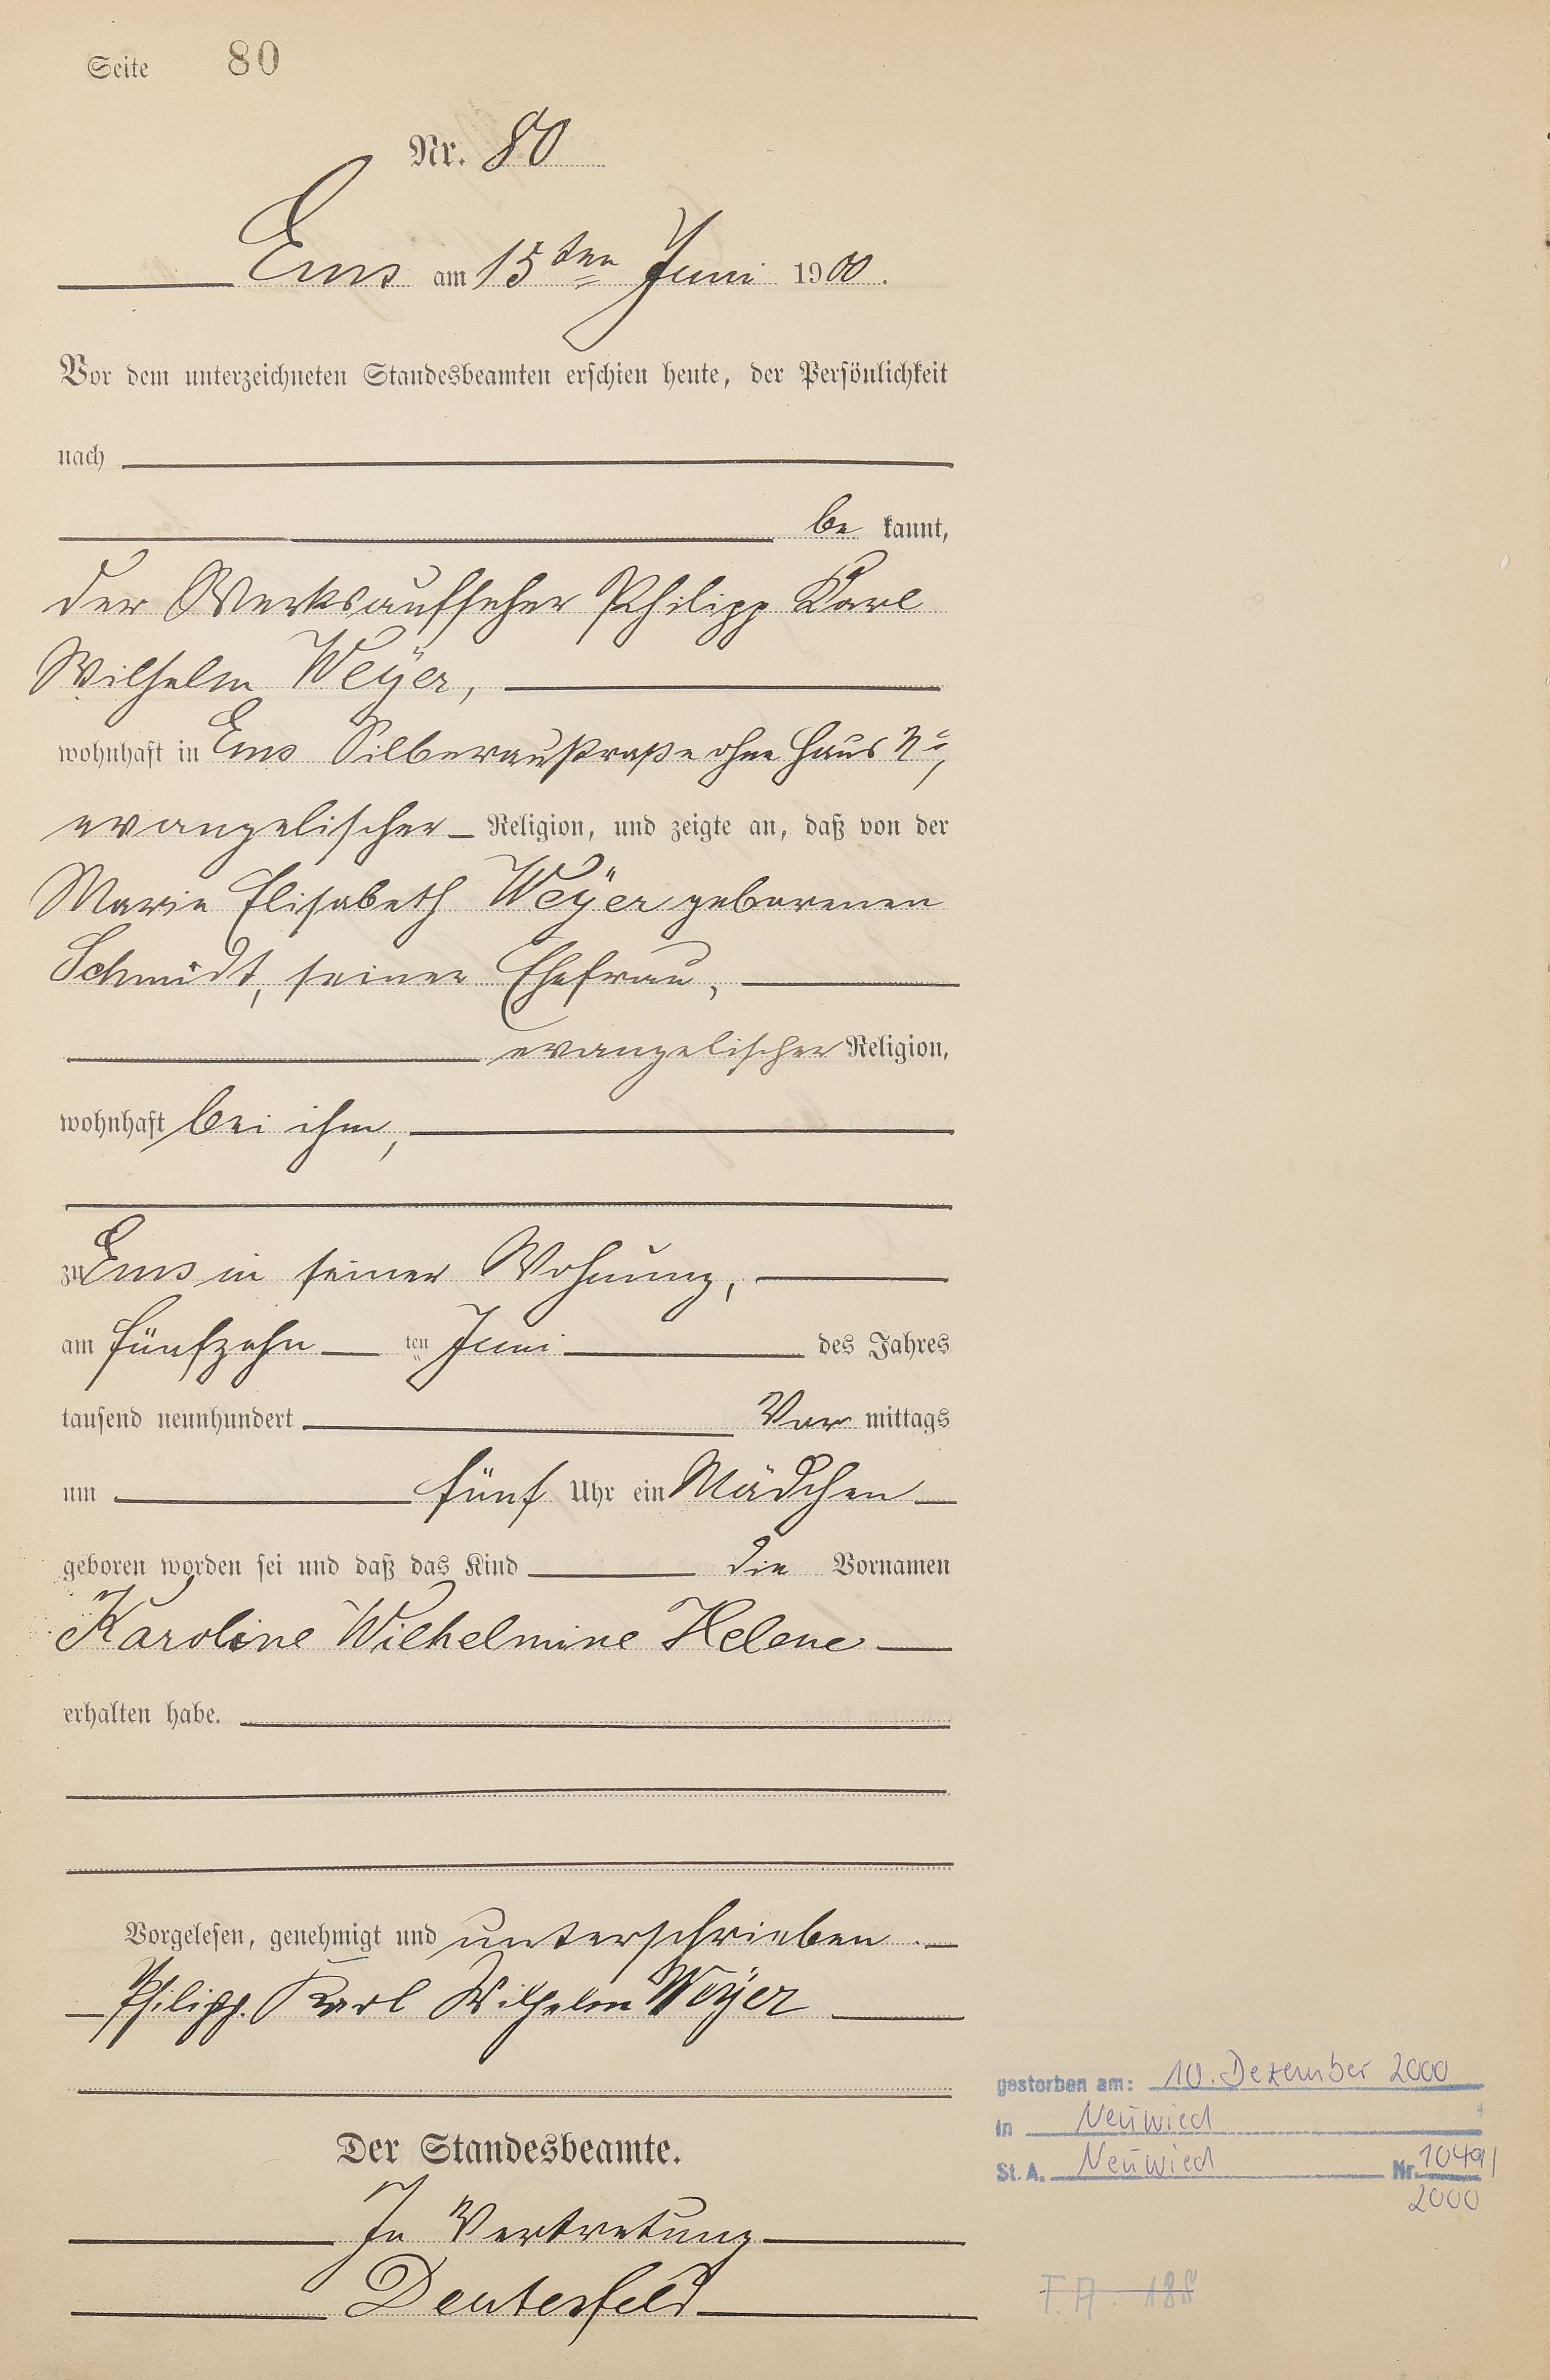 Seite 80
Nr. 80
Ems am 15ten Juni 1900.
Vor dem unterzeichneten Standesbeamten erschien heute, der Persönlichkeit
nach
be kannt,
der Werksaufseher Philipp Karl
Wilhelm Weÿer,
wohnhaft in Ems Silberaustraße ohne Haus No,
evangelischer Religion, und zeigte an, daß von der
Marie Elisabeth Weÿer geborenen
Schmidt, seiner Ehefrau,
evangelischer Religion,
wohnhaft bei ihm,
zu Ems in seiner Wohnung,
am fünfzehn ten Juni des Jahres
tausend neunhundert Vor mittags
um fünf Uhr ein Mädchen
geboren worden sei und daß das Kind die Vornamen
Karoline Wilhelmine Helene
erhalten habe.
Vorgelesen, genehmigt und unterschrieben
Philipp Karl Wilhelm Weÿer
Der Standesbeamte.
In Vertretung
Deutesfeld
gestorben am: 10. Dezember 2000
in Neuwied
St. A. Neuwied Nr. 1049/
2000
F.A. 188